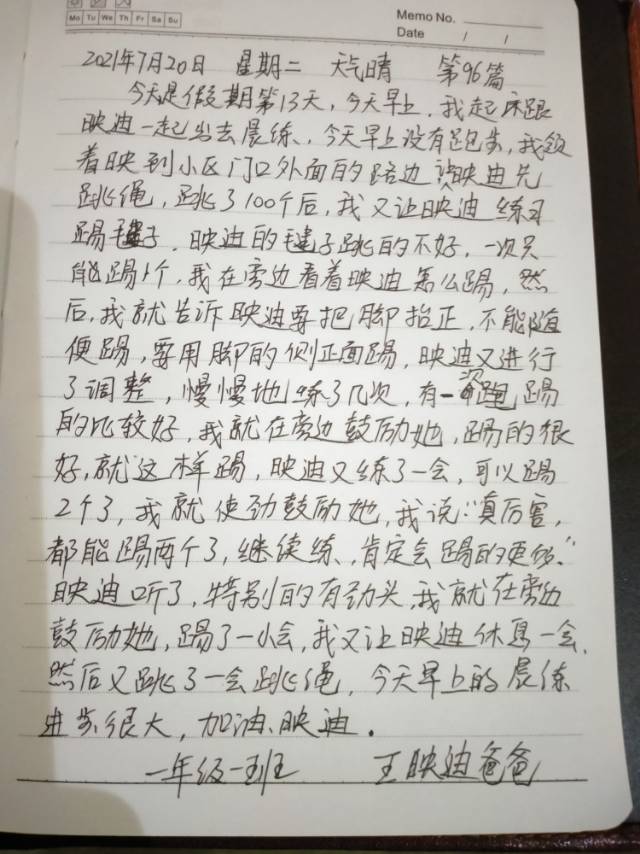 Memo No.
Mo Tu We Th Fr Sa Su
Date / /
2021年7月20日 星期二 天气晴 第96篇
今天是假期第13天，今天早上，我起床跟
映迪一起出去晨练、今天早上没有跑步，我领
着映到小区门口外面的路边 让映迪先
跳绳，跳了100个后，我又让映迪练习
踢毽子，映迪的毽子跳的不好，一次只
能踢1个，我在旁边看着映迪怎么踢，然
后，我就告诉映迪要把脚抬正，不能随
便踢，要用脚的侧正面踢，映迪又进行
了调整，慢慢地练了几次，有一次踢
的比较好，我就在旁边鼓励她，踢的很
好，就这样踢，映迪又练了一会，可以踢
2个了，我就使劲鼓励她，我说："真厉害，
都能踢两个了，继续练、肯定会踢的更多."
映迪听了，特别的有劲头，我就在旁边
鼓励她，踢了一小会，我又让映迪休息一会，
然后又跳了一会跳绳，今天早上的晨练
进步很大，加油、映迪．
一年级一班 王映迪爸爸